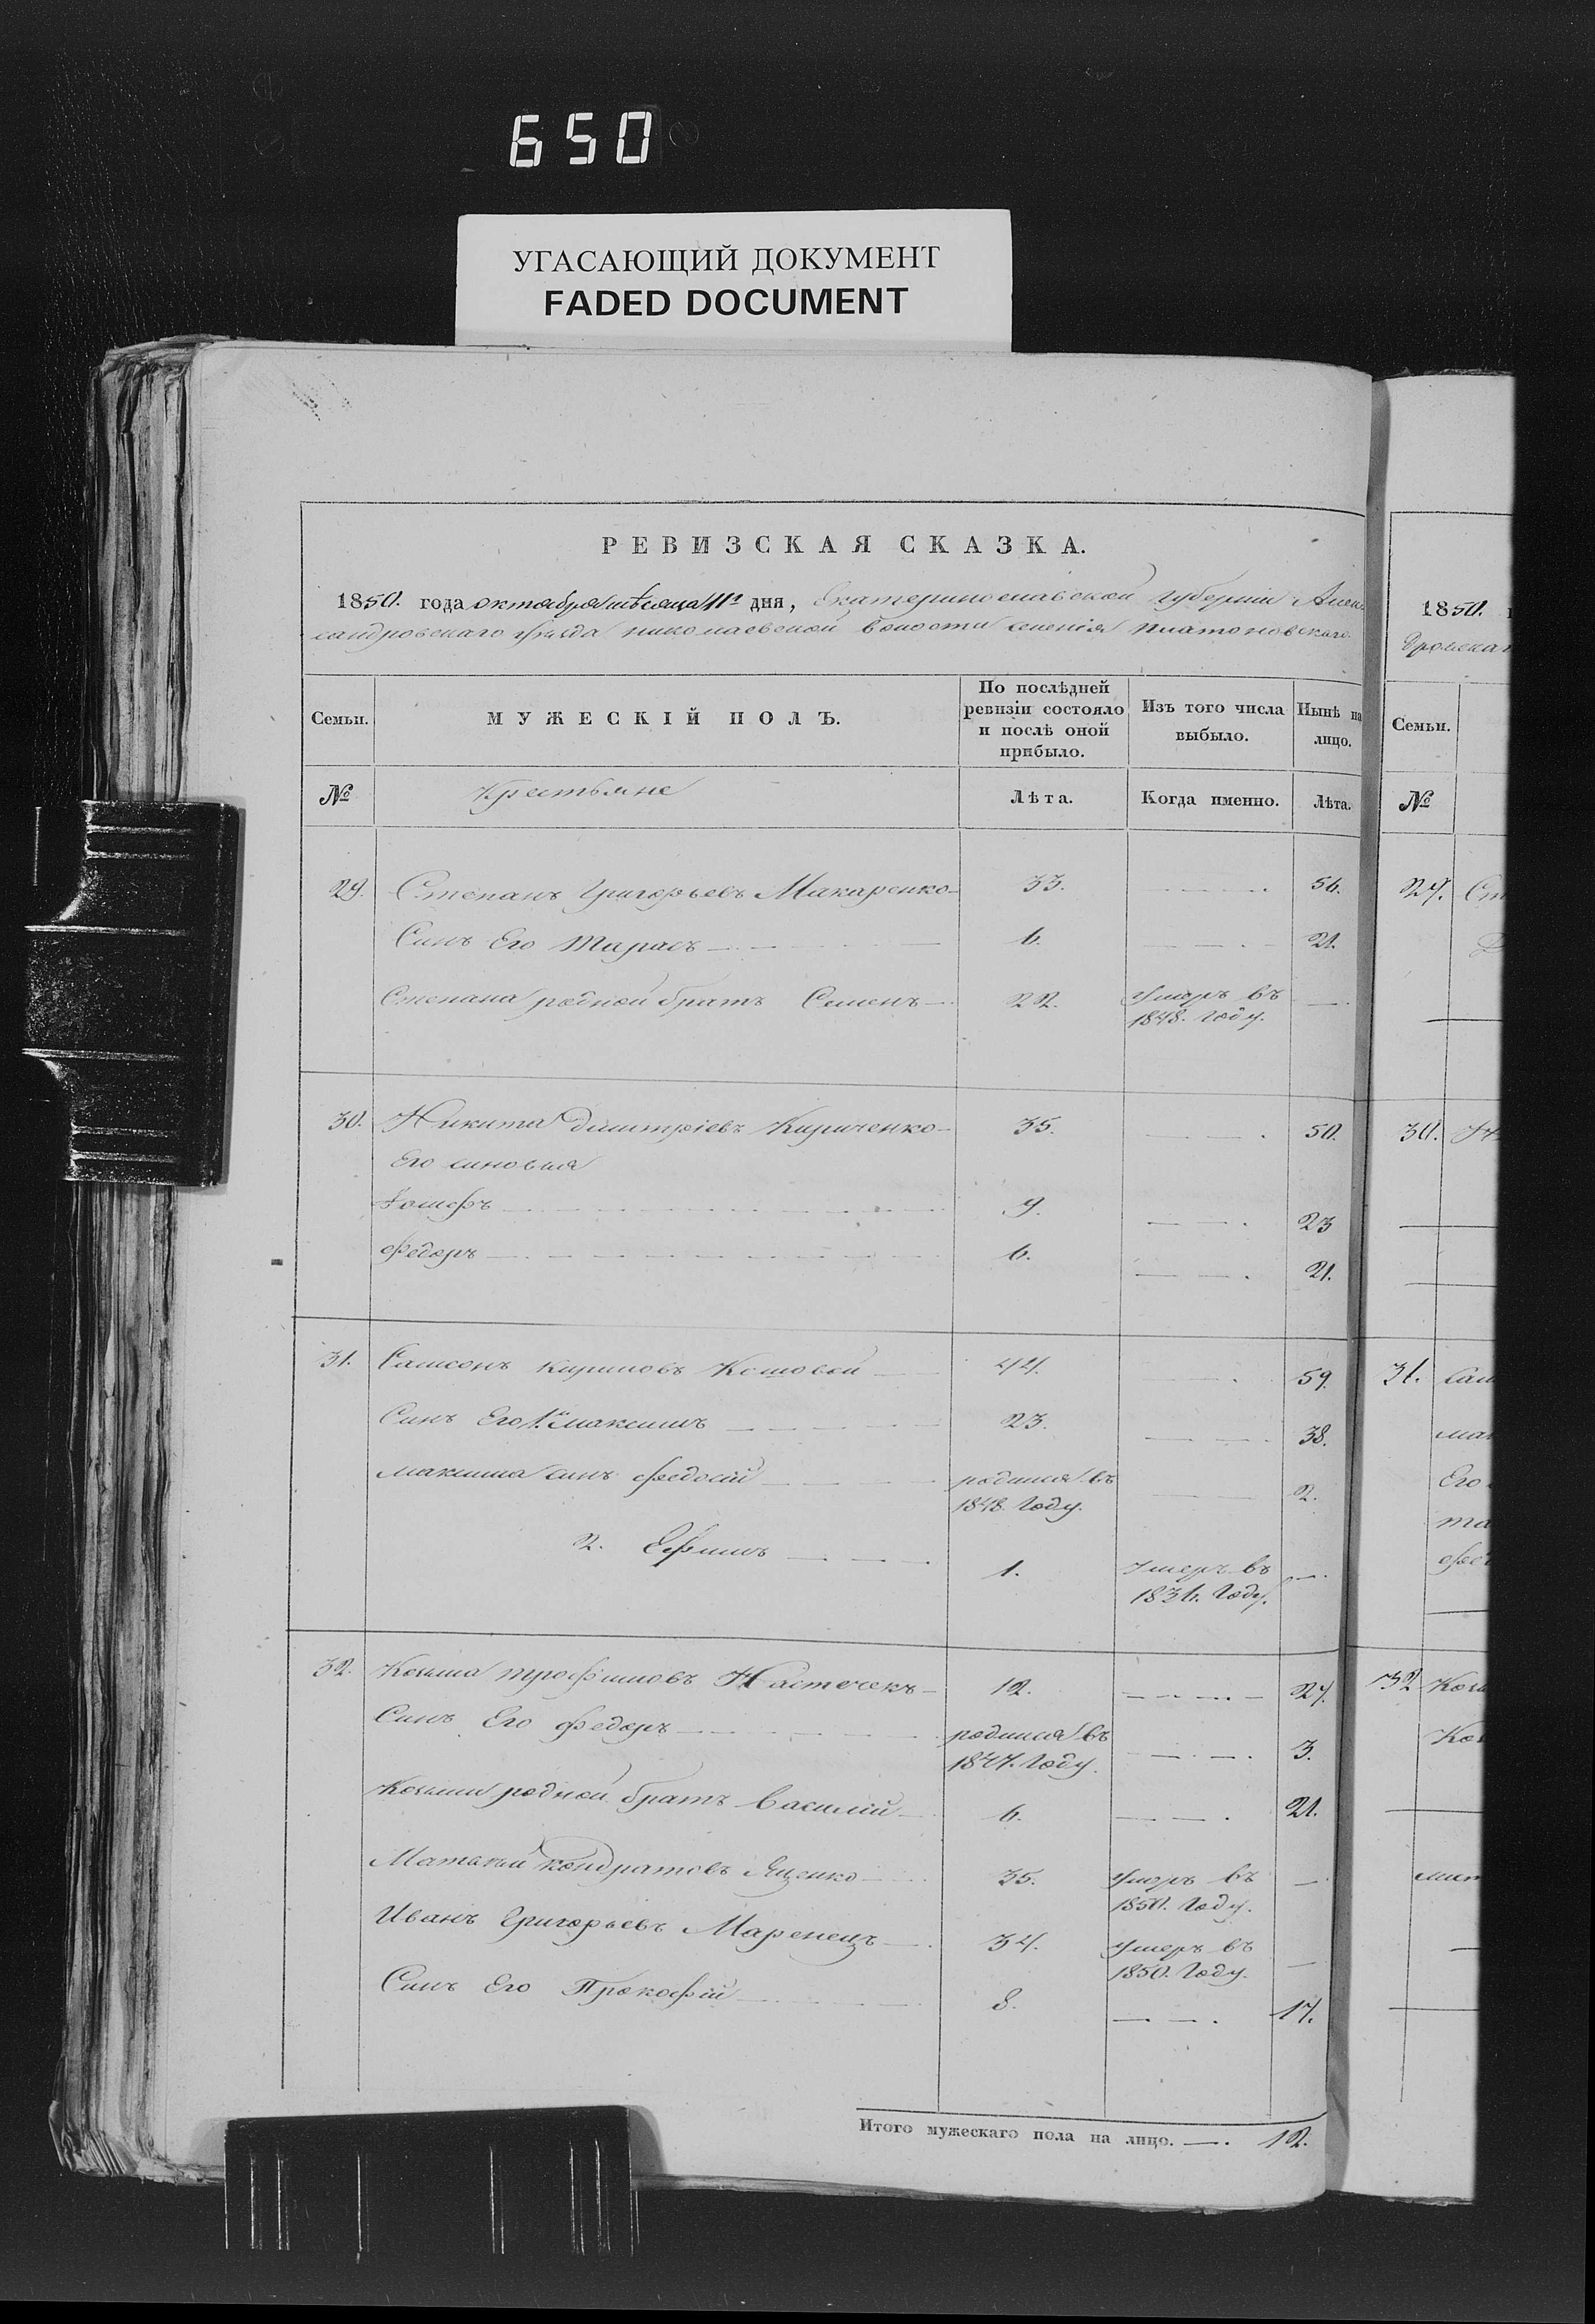 650
УГАСАЮЩИЙ ДОКУМЕНТ
FADED DOCUMENT
РЕВИЗСКАЯ СКАЗКА.
1850. года октября мѣсяца 11го дня, Екатеринославской губернiи Алек
сандровскаго уѣзда николаевской волости селенiя платоновскаго
Семьи. МУЖЕСКІЙ ПОЛЪ. По послѣдней ревизіи состояло и послѣ оной прибыло. Изъ того числа выбыло. Нынѣ на лицо.
№ Крестьяне Лѣта. Когда именно. Лѣта.
29. Степанъ Григорьевъ Макаренко 33. 56.
Синъ Его Тарасъ 6. 21.
Степана родной братъ Семенъ 22. умеръ въ 1848. Году.
30. Никита дмитрiевъ Кириченко 35. 50.
Его синовья
Iосифъ 9. 23
Федоръ 6. 21.
31. Самсонъ кириловъ Кошовой 44. 59.
Синъ Его 1.й максимъ 23. 38.
максима синъ федосiй родился въ 1848 Году. 2.
2. Ефимъ 1. умеръ въ 1836. Году.
32. Козьма трофимовъ 12. 27.
Синъ Его федоръ родился въ 1847. Году. 3.
Козьми родной братъ василiй 6. 21.
кондратовъ Яценко 35. умеръ въ 1850. Году.
Иванъ Григорьевъ Маренецъ 34. умеръ въ 1850. Году.
Синъ Его Прокофiй 8. 17.
Итого мужескаго пола на лицо. 12.
1850.
Семьи.
№
29. Ст
30.
31. Сам
мак
Его
32 Козь